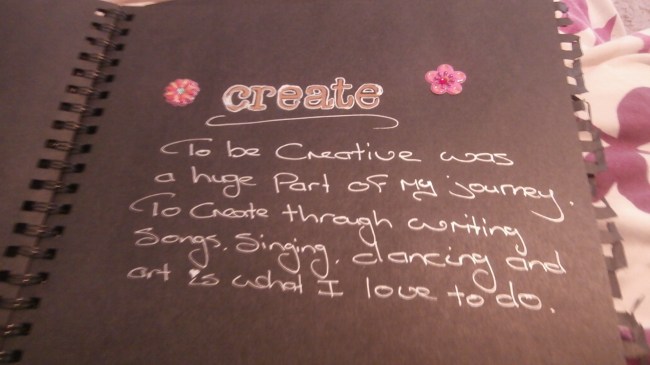 create
To be Creative was
a huge Part of my journey.
To Create through writing
Songs, Singing, dancing and
art is what I love to do.